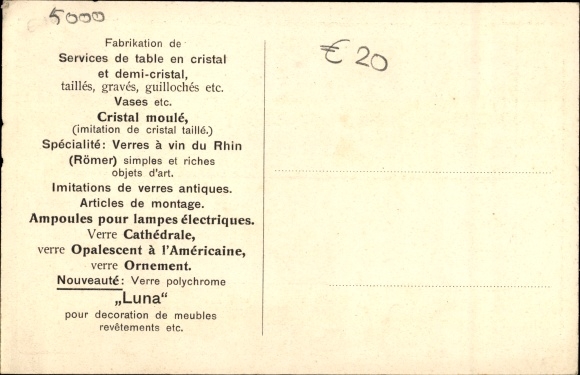 5000
Fabrikation de
Services de table en cristal
et demi-cristal,
taillés, gravés, guillochés etc.
Vases etc.
Cristal moulé,
(imitation de cristal taillé.)
Spécialité: Verres à vin du Rhin
(Römer) simples et riches
objets d'art.
Imitations de verres antiques.
Articles de montage.
Ampoules pour lampes électriques.
Verre Cathédrale,
verre Opalescent à l'Américaine,
verre Ornement.
Nouveauté: Verre polychrome
„Luna“
pour decoration de meubles
revêtements etc.
€ 20